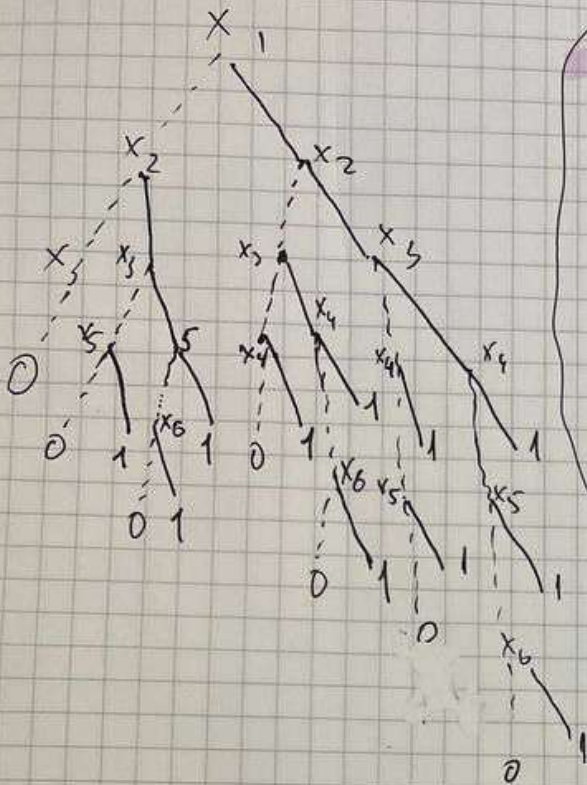 x 1
x2 x2
x3 x3 x3 x3
x5 5 x4 x4 x4 x4
0 0 1 x6 1 0 1 1 1 1
0 1 x6 x5 x5
0 1 0 1 1
x6
0 1